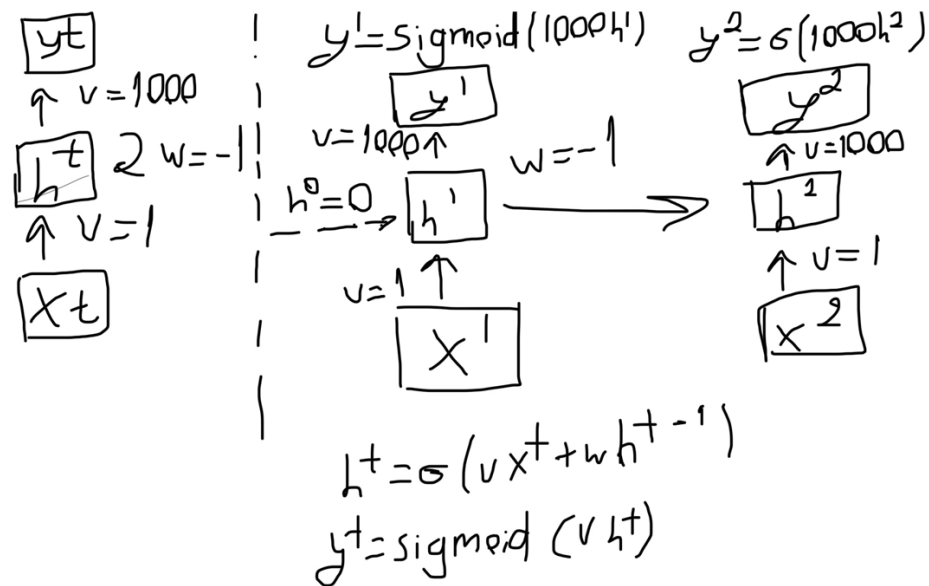 yt
v=1000
h^t 2 w=-1
v=1
xt
y^1=sigmoid(1000h^1)
y^1
v=1000
h^0=0
h^1
w=-1
v=1
x^1
y^2=σ(1000h^2)
y^2
v=1000
h^2
v=1
x^2
h^t=σ(vx^t+wh^t-1)
y^t=sigmoid(Vh^t)